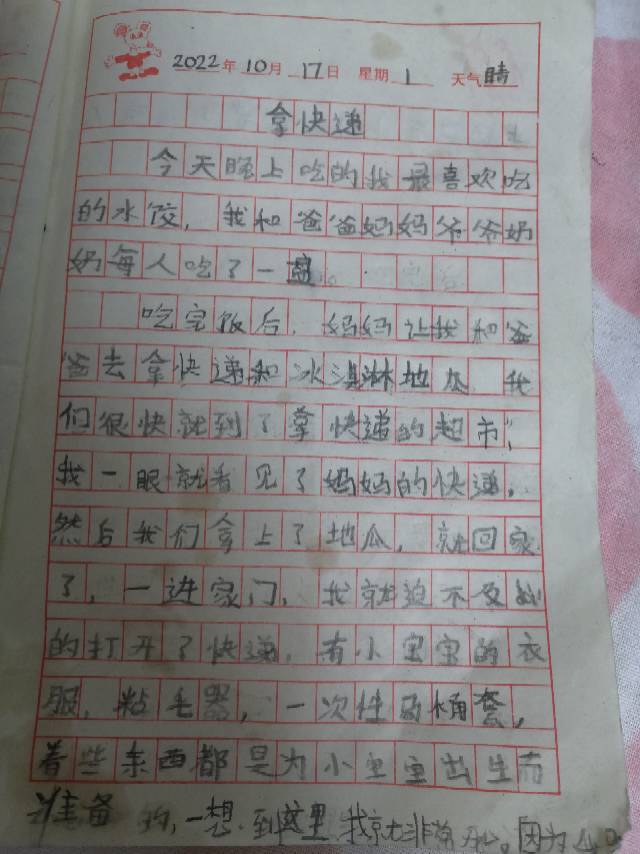 2022年 10月 17日 星期 1 天气晴
拿快递
今天晚上吃的我最喜欢吃
的水饺，我和爸爸妈妈爷爷奶
奶每人吃了一盘。
吃完饭后，妈妈让我和爸
爸去拿快递和冰淇淋地瓜 我
们很快就到了拿快递的超市，
我一眼就看见了妈妈的快递，
然后我们拿上了地瓜，就回家
了，一进家门，我就迫不及
的打开了快递，有小宝宝的衣
服，粘毛器，一次性马桶套，
着些东西都是为小宝宝出生而
准备的，一想到这里我就非常开心。因为